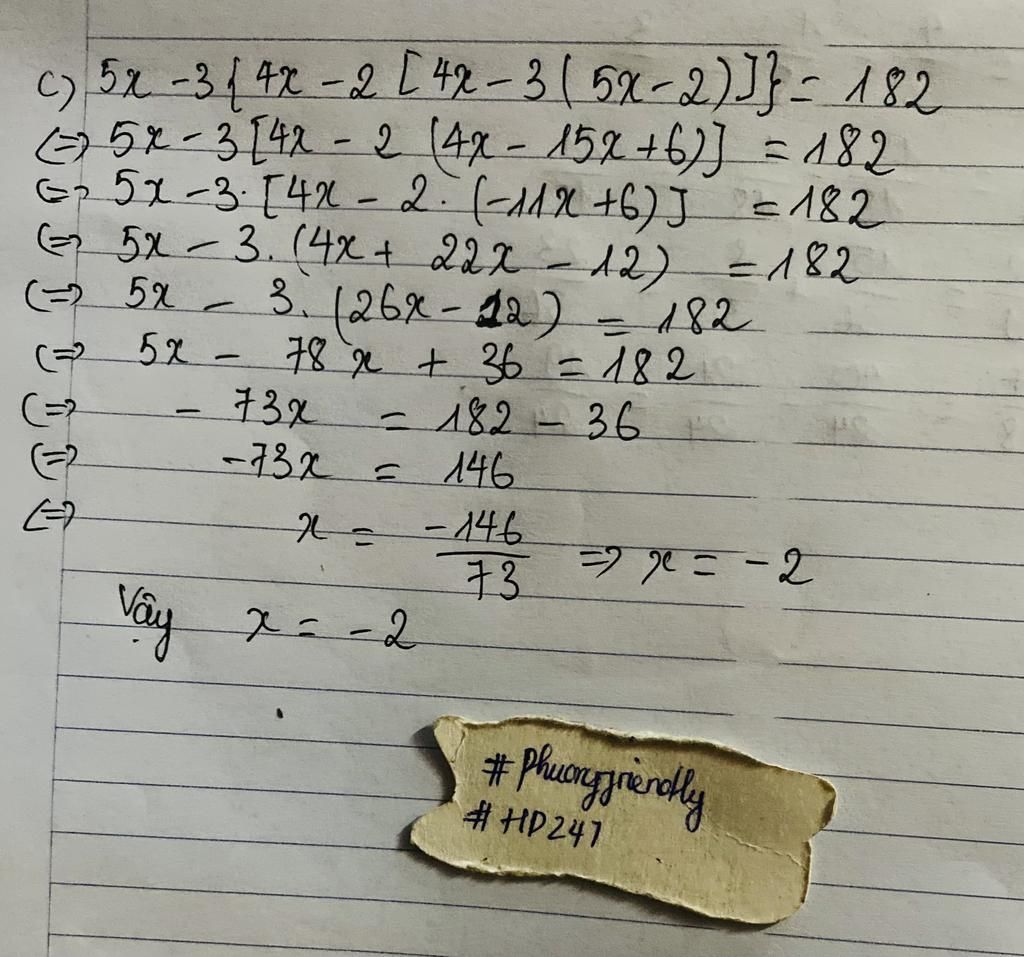 c) 5x - 3{4x - 2[4x - 3(5x - 2)]} = 182
(=) 5x - 3[4x - 2 (4x - 15x + 6)] = 182
(=) 5x - 3.[4x - 2.(-11x + 6)] = 182
(=) 5x - 3.(4x + 22x - 12) = 182
(=) 5x - 3.(26x - 12) = 182
(=) 5x - 78x + 36 = 182
(=) - 73x = 182 - 36
(=) -73x = 146
(=) x = -146/73 => x = -2
Vậy x = -2
# Phuongfriendly
# HD247